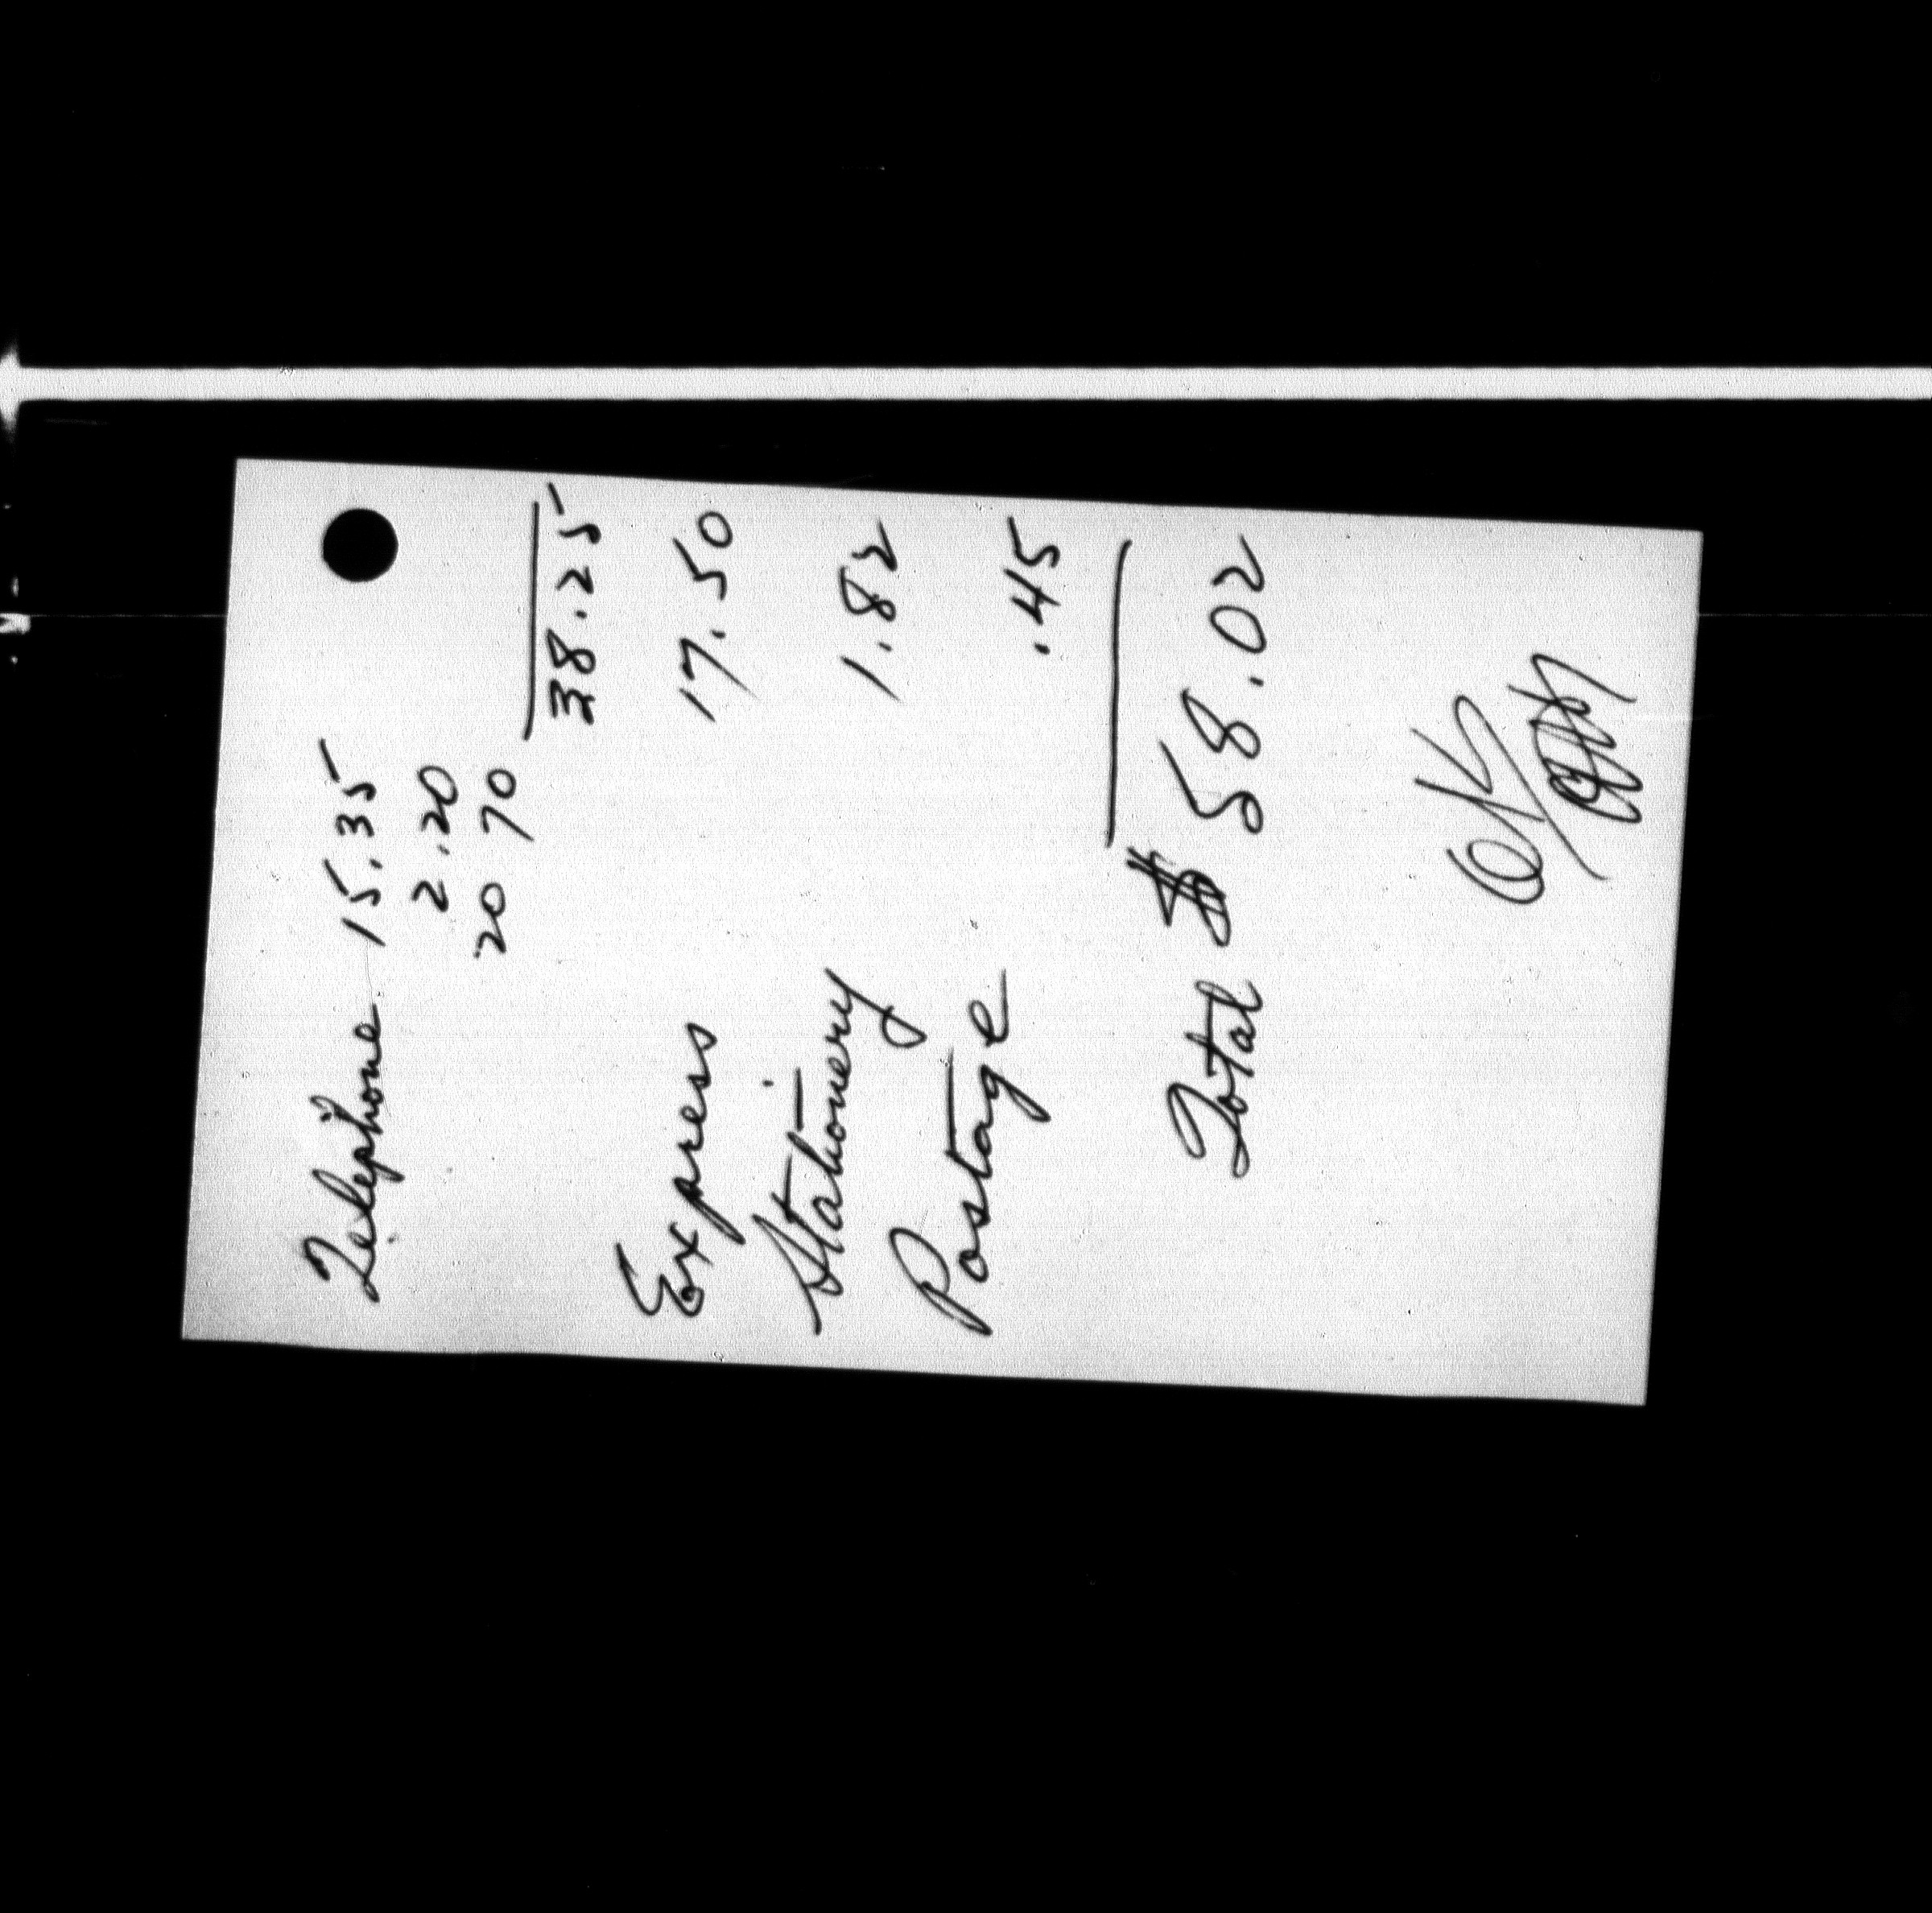 Telephone 15.35
2.20
20 70
38.25
Express 17.50
Stationery 1.82
Postage .45
Total $ 58.02
OK